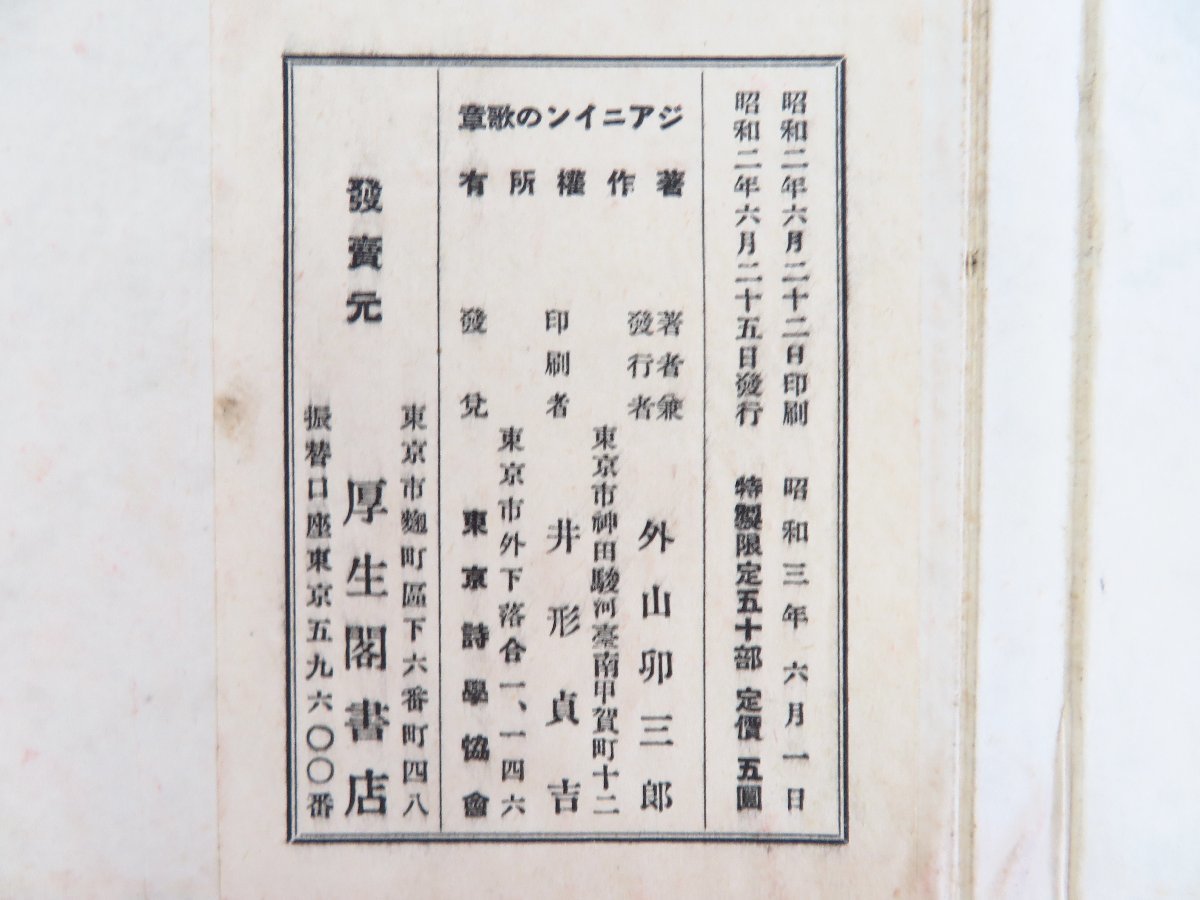 昭和二年六月二十二日印刷　昭和三年六月一日
昭和二年六月二十五日發行　特製限定五十部　定價　五圓
ジアニインの歌章
著作權所有
著者兼
發行者　外山卯三郎
東京市神田駿河臺南甲賀町十二
印刷者　井形貞吉
東京市外下落合一、一四六
發兌　東京詩學協會
東京市麴町區下六番町四八
發賣元　厚生閣書店
振替口座東京五九六〇〇番